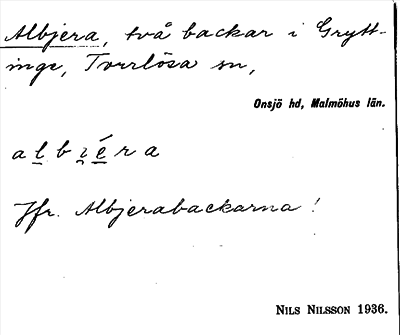 Albjera, två backar i Grytt-
inge, Tverlösa sn,
Onsjö hd, Malmöhus län.
a l b i̯ é r a
Jfr. Albjerabackarna!
NILS NILSSON 1936.